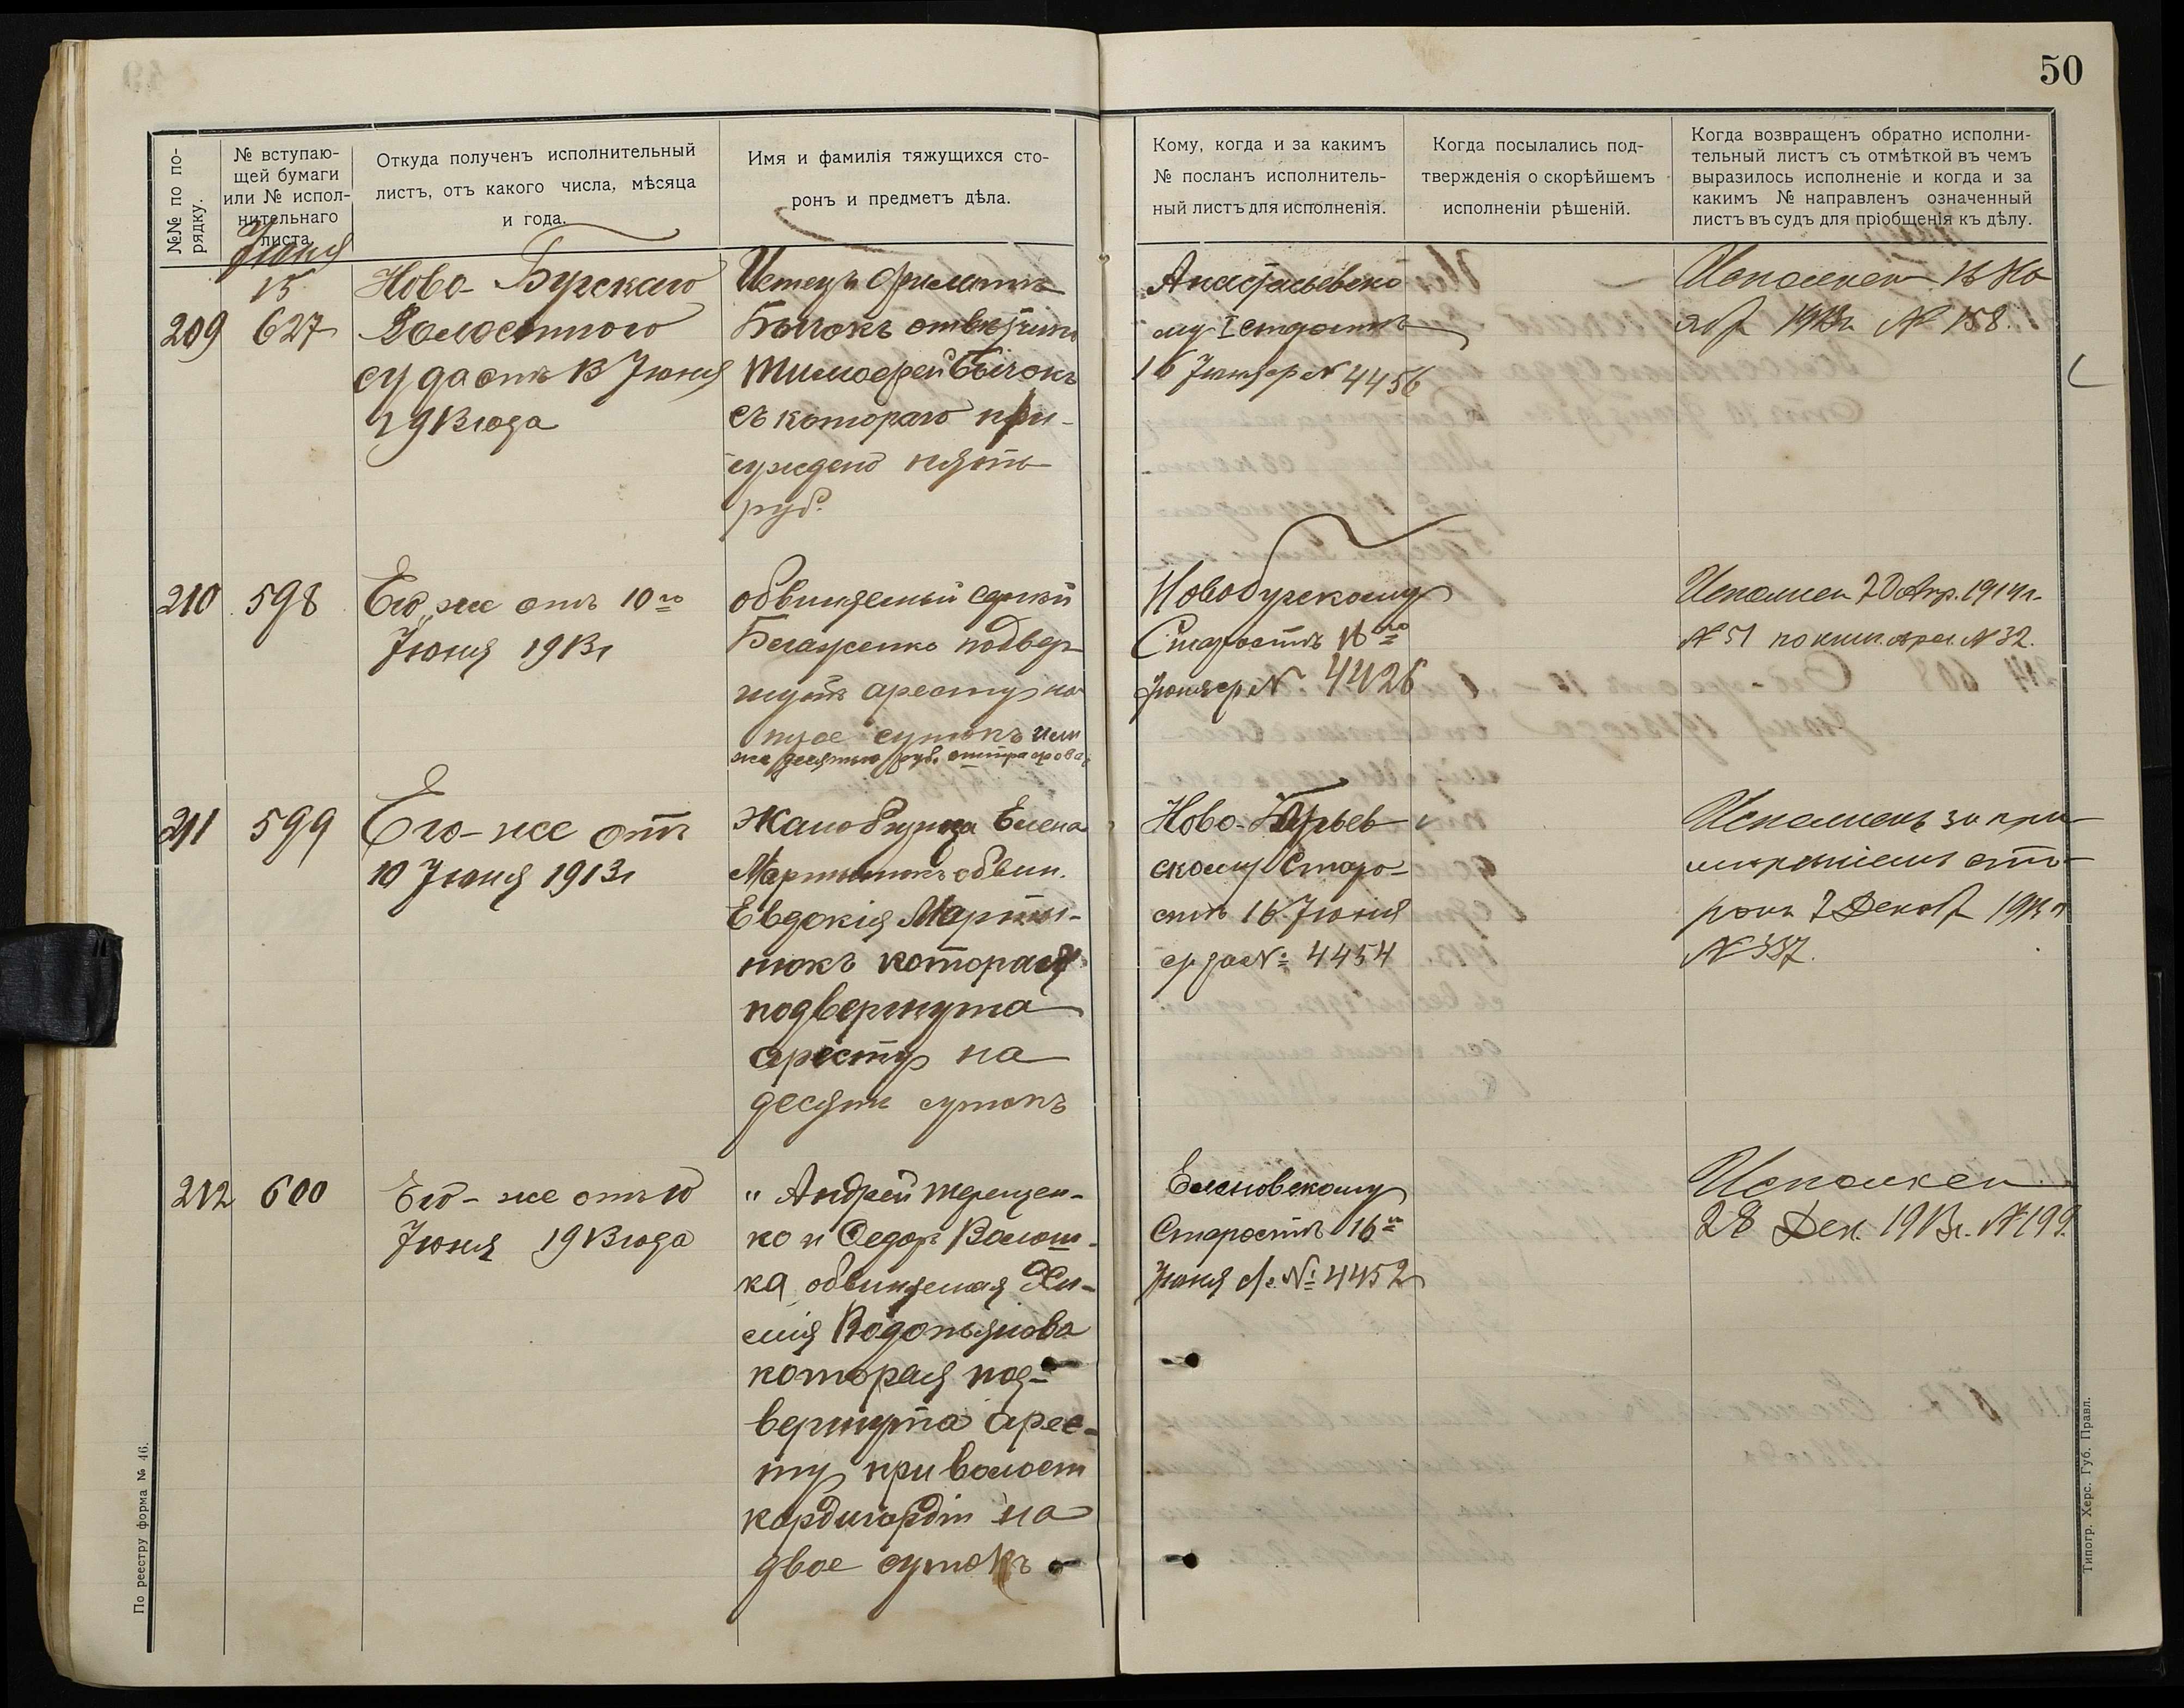 50
№№ по по-
рядку.
№ вступаю-
щей бумаги
или № испол-
нительнаго
листа.
Откуда полученъ исполнительный
листъ, отъ какого числа, мѣсяца
и года.
Имя и фамилія тяжущихся сто-
ронъ и предметъ дѣла.
Кому, когда и за какимъ
№ посланъ исполнитель-
ный листъ для исполненія.
Когда посылались под-
твержденія о скорѣйшемъ
исполненіи рѣшеній.
Когда возвращенъ обратно исполни-
тельный листъ съ отмѣткой въ чемъ
выразилось исполненіе и когда и за
какимъ № направленъ означенный
листъ въ судъ для пріобщенія къ дѣлу.
Іюня
15
209
627
Ново-Бугскаго
Волостного
суда отъ 13 Іюня
1913 года
Истецъ Филиппъ
Бычокъ отвѣтчикъ
Тимофей Бычокъ
съ котораго при-
суждено пять
руб.
Анастасьевско
му I старостѣ
16 Іюня № 4456
Исполнен 16 Но
яб 1913г. № 158.
210
598
Его же отъ 10го
Іюня 1913г
обвиняемый
подвер
нутъ аресту на
трое сутокъ или
же десятью руб.
Новобугскому
Старостѣ 16го
Іюня № 4426
Исполнен 20 Апр. 1914г.
№ 51 по книг. арес. № 32.
211
599
Его-же отъ
10 Іюня 1913г
Жалобщица Елена
Мартынюкъ обвин.
Евдокія Марты-
нюкъ которая
подвергнута
аресту на
десять сутокъ
Ново-Юрьев
скому Старо-
стѣ 16 Іюня
за № 4454
Исполненъ за при-
миреніемъ сто-
ронъ 7 Декаб 1913г
№ 337.
212
600
Его-же отъ 10
Іюня 1913 года
" Андрей Терещен-
ко и Федоръ Волош-
ка обвиняемая
Водопьянова
которая под-
вергнута арес-
ту при волост
кордигардіи на
двое сутокъ
Елановскому
Старостѣ 16го
Іюня № 4452
Исполнен
28 Дек. 1913г. № 199.
По реестру форма № 46.
Типогр. Херс. Губ. Правл.